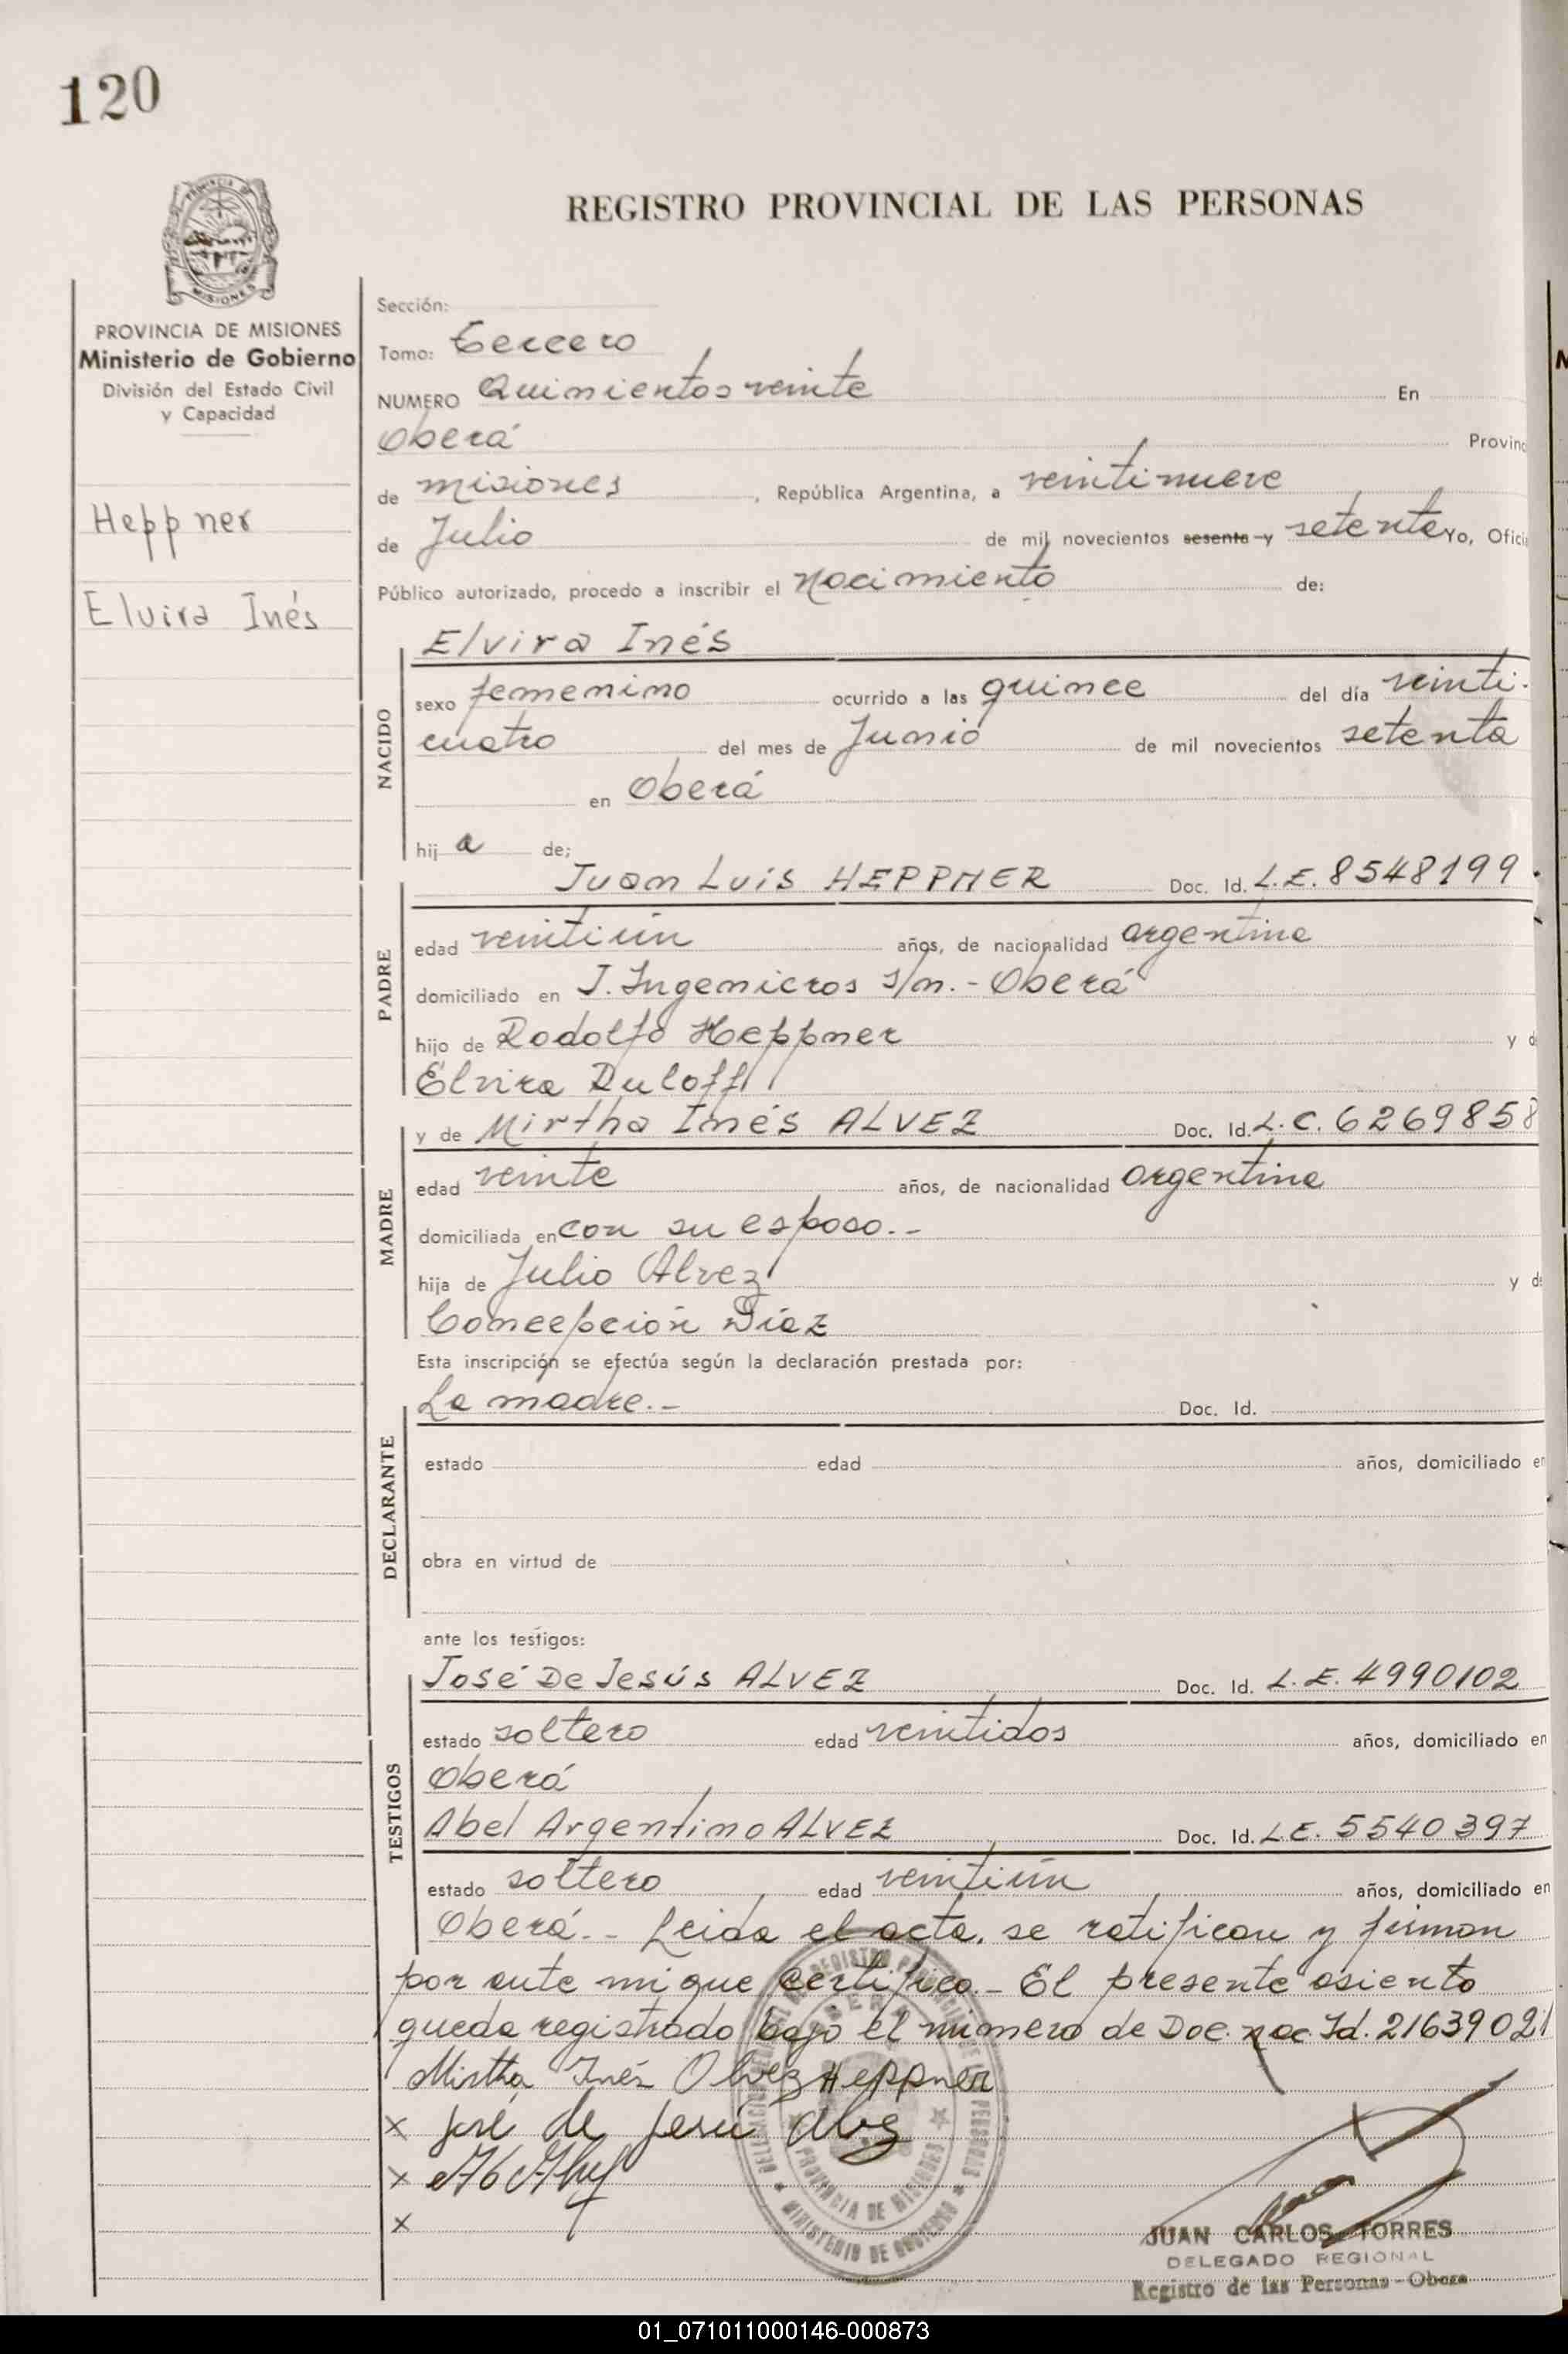 120
REGISTRO PROVINCIAL DE LAS PERSONAS
MISIONES
PROVINCIA DE MISIONES
Ministerio de Gobierno
División del Estado Civil
y Capacidad
Heppner
Elvira Inés
Sección:
Tomo: Tercero
NUMERO Quinientos veinte En
Oberá Provinc
de Misiones, República Argentina, a veintinueve
de Julio de mil novecientos sesenta y setenta Yo, Ofici
Público autorizado, procedo a inscribir el Nacimiento de:
NACIDO
Elvira Inés
sexo femenino ocurrido a las quince del día veinti-
cuatro del mes de Junio de mil novecientos setenta
en Oberá
hija de;
PADRE
Juan Luis HEPPNER Doc. Id. L.E. 8548199.
edad veintiún años, de nacionalidad argentina
domiciliado en J. Ingenieros s/n. - Oberá
hijo de Rodolfo Heppner y d
Elvira Duloff
MADRE
y de Mirtha Inés ALVEZ Doc. Id. L.C. 6269858
edad veinte años, de nacionalidad argentina
domiciliada en con su esposo.-
hija de Julio Alvez y d
Concepción Díaz
Esta inscripción se efectúa según la declaración prestada por:
DECLARANTE
La madre.- Doc. Id.
estado edad años, domiciliado en
obra en virtud de
ante los testigos:
TESTIGOS
José De Jesús ALVEZ Doc. Id. L.E. 4990102
estado soltero edad veintidos años, domiciliado en
Oberá
Abel Argentino ALVEZ Doc. Id. L.E. 5540397
estado soltero edad veintiún años, domiciliado en
Oberá.- Leida el acta, se ratifican y firman
por ante mi que certifico.- El presente asiento
queda registrado bajo el número de Doc. nac. Id. 21639021
Mirtha Inés Alvez Heppner
x José de Jesú Alvez
x
x
PROVINCIA DE MISIONES
MINISTERIO DE GOBIERNO
JUAN CARLOS TORRES
DELEGADO REGIONAL
Registro de las Personas - Obera
01_071011000146-000873